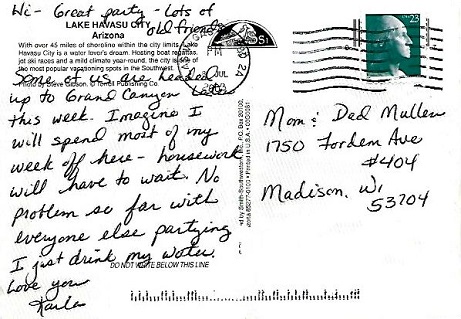 Hi - Great party - Lots of
old friends
LAKE HAVASU CITY
Arizona
With over 45 miles of shoreline within the city limits, Lake
Havasu City is a water lover's dream. Hosting boat regattas,
jet ski races and a mild climate year-round, the city is one of
the most popular vacationing spots in the Southwest.
Photo by Steve Gibson, © Terrell Publishing Co.
Some of us are headed
up to Grand Canyon
this week. Imagine I
will spend most of my
week off here - housework
will have to wait. No
problem so far with
everyone else partying
I just drink my water.
Love you
Karla
DO NOT WRITE BELOW THIS LINE
JUL
23
Mom & Dad Mullen
1750 Fordem Ave
#404
Madison, Wi
53704